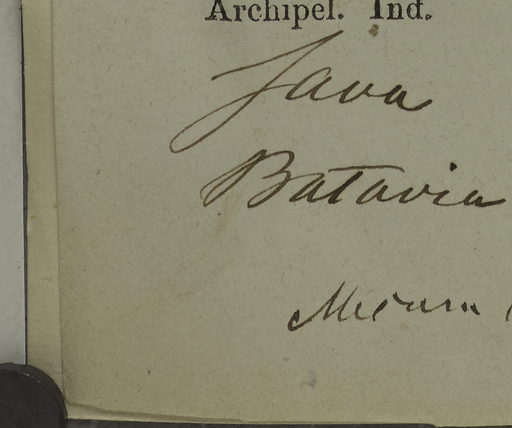 Archipel. Ind.
Java
Batavia